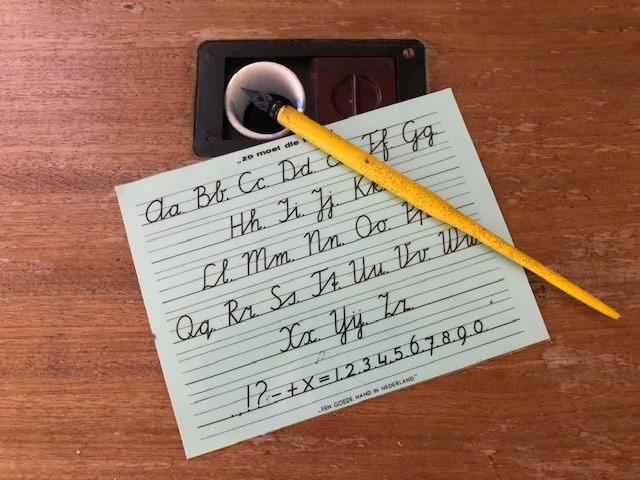 „zo moet die
Aa. Bb. Cc. Dd. Ff. Gg.
Hh. Ii. Jj. Kk.
Ll. Mm. Nn. Oo. Pp.
Qq. Rr. Ss. Tt. Uu. Vv. Ww.
Xx. IJij. Zz.
., !?-+x=1.2.3.4.5.6.7.8.9.0
„EEN GOEDE HAND IN NEDERLAND"